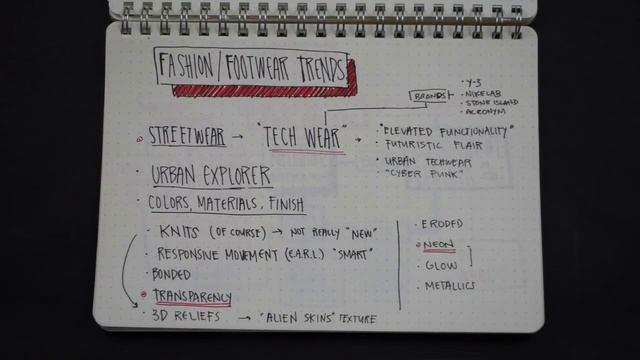 FASHION/FOOTWEAR TRENDS
BRANDS
· Y-3
· NIKELAB
· STONE ISLAND
· ACRONYM
STREETWEAR → "TECH WEAR" →
· "ELEVATED FUNCTIONALITY"
· FUTURISTIC FLAIR
· URBAN TECHWEAR
· "CYBER PUNK"
· URBAN EXPLORER
· COLORS, MATERIALS, FINISH
· KNITS (OF COURSE) → NOT REALLY "NEW"
· RESPONSIVE MOVEMENT (E.A.R.L.) "SMART"
· BONDED
· TRANSPARENCY
· 3D RELIEFS → "ALIEN SKINS" TEXTURE
· ERODED
· NEON
· GLOW
· METALLICS